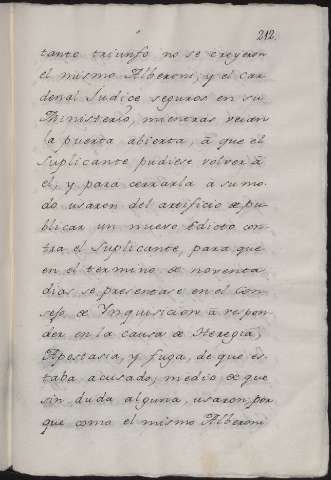 212.
tanto triunfo no se creyeron
el mismo Alberoni, y el Car
denal Judice seguros en su
Ministerio, mientras veian
la puerta abierta, â que el
Suplicante pudiese volver â
el, y para cerrarla a su mo-
do usaron del artificio de pu-
blicar un nuevo Edicto con-
tra el Suplicante, para que
en el termino de noventa
dias se presentase en el Con-
sejo de Ynquisicion â respon
der en la causa de Heregia,
Apostasia, y fuga, de que es-
taba acusado, medio de que
sin duda alguna, usaron, por
que como el mismo Alberoni